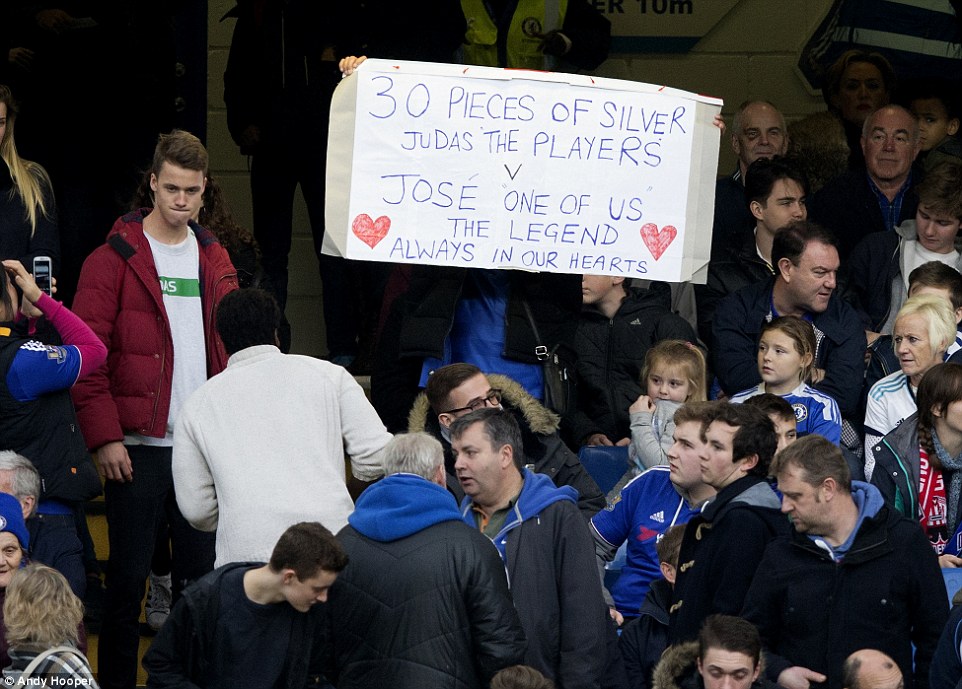 ER 10m
30 PIECES OF SILVER
JUDAS "THE PLAYERS"
V
JOSÉ "ONE OF US"
THE LEGEND
ALWAYS IN OUR HEARTS
AS
© Andy Hooper